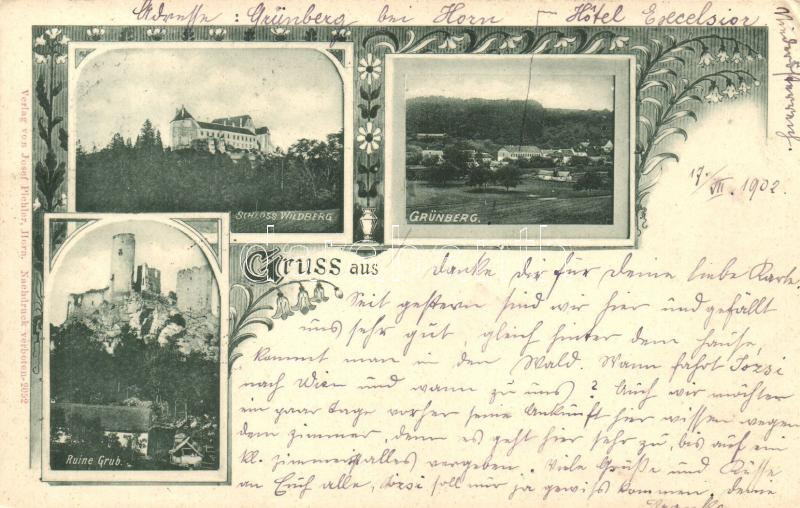 Adresse : Grünberg bei Horn – Hôtel Excelsior
Niederösterreich
17. VII. 1902
SCHLOSS WILDBERG.
GRÜNBERG.
Ruine Grub.
Verlag von Josef Pichler, Horn. Nachdruck verboten. 2092
Gruss aus
danke Dir für Deine liebe Karte.
Seit gestern sind wir hier und gefällt
uns sehr gut, gleich hinter dem Hause,
kommt man in den Wald. Wann fährt
nach Wien und wann zu uns ? Auch wir möchten
ein paar Tage vorher seine Ankunft hier wissen wegen
dem Zimmer, denn es geht hier sehr zu, bis auf ein
kl. Zimmer alles vergeben. Viele Grüße und Küsse
an Euch alle, soll nur ja gewiss kommen. Deine